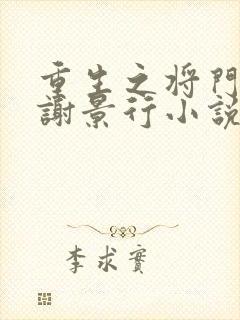 重生之将門
謝景行小説
李求實